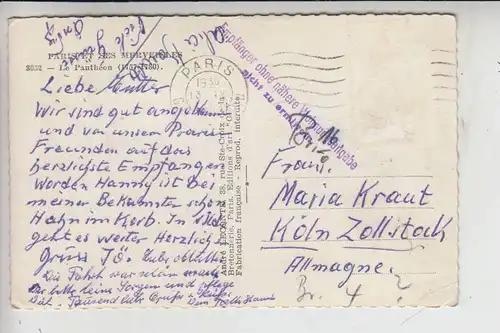 PARIS ET SES MERVEILLES
2032 — Le Panthéon (1757-1780).
viele Grüße
PARIS
Empfänger ohne nähere Wohnungsangabe
nicht zu ermitteln
Liebe Mutter
Wir sind gut angekommen
und von unsern Pariser
Freunden auf das
herzlichste Empfangen
worden Hanny ist bei
meiner Bekannten schon
Hahn im Korb. In
geht es weiter Herzlich
Gruss
Die Fahrt war schön
bitte keine Sorgen und pflege
Dich. Tausend liebe Grüße Küße
Dein Hanni
André LECONTE, 38, rue Ste-Croix-de-la-
Bretonnerie, Paris. Editions d'art "Guy"
Fabrication française - Reprod. interdite.
Frau
Maria Kraut
Köln Zollstock
Allmagne.
Br. 4 ?